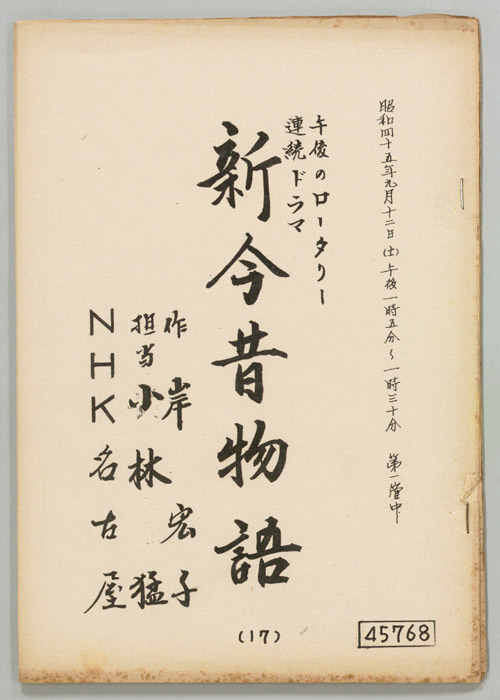 昭和四十五年九月十二日(土)午後一時五分〜一時三十分 第一管中
午後のロータリー
連続ドラマ
新今昔物語
(17)
作 岸宏子
担当 小林猛
NHK名古屋
45768